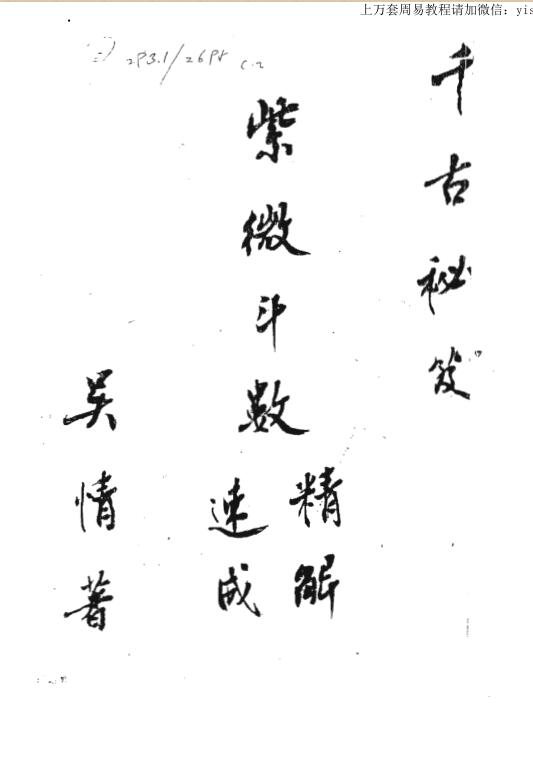 上万套周易教程请加微信：yis
293.1/2698 C.2
千古祕笈
紫微斗數
精解
速成
吳情著